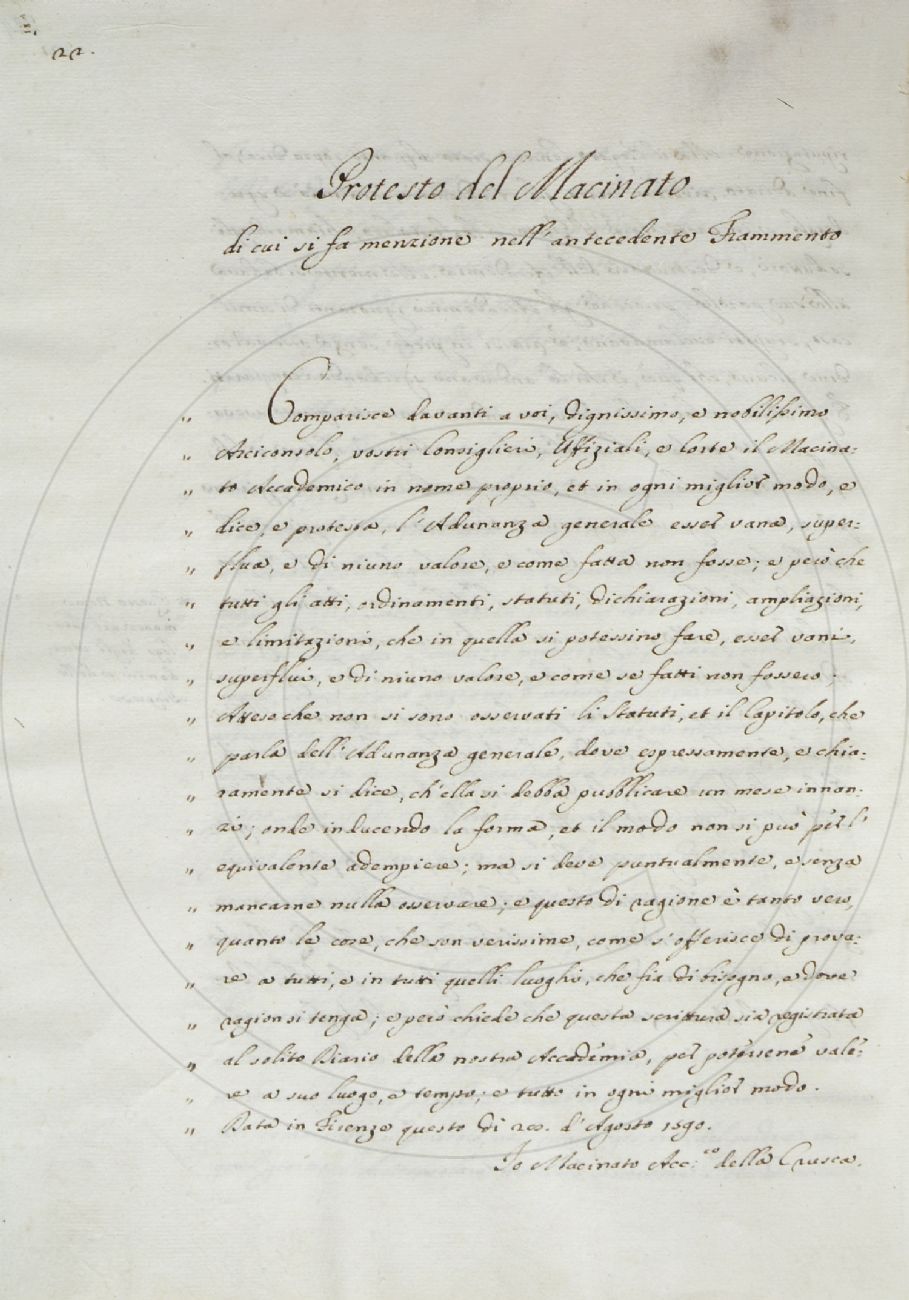 22.
Protesto del Macinato
di cui si fa menzione nell'antecedente Frammento
„ Comparisce davanti a voi, dignissimo, e nobilissimo
„ Arciconsolo, vostri Consiglieri, Uffiziali, e Corte il Macina-
„ to Accademico in nome proprio, et in ogni miglior modo, e
„ dice, e protesta, l'Adunanza generale esser vana, super-
„ flua, e di niuno valore, e come fatta non fosse; e però che
„ tutti gli atti, ordinamenti, statuti, dichiarazioni, ampliazioni,
„ e limitazioni, che in quella si potessino fare, esser vani,
„ superflui, e di niuno valore, e come se fatti non fossero.
„ Atteso che non si sono osservati li Statuti, et il Capitolo, che
„ parla dell'Adunanza generale, dove espressamente, e chia-
„ ramente si dice, ch'ella si debba pubblicare un mese innan-
„ zi; onde inducendo la forma, et il modo non si può per l'
„ equivalente adempiere; ma si deve puntualmente, e senza
„ mancarne nulla osservare; e questo di ragione è tanto vero,
„ quanto le cose, che son verissime, come s'offerisce di prova-
„ re a tutti, e in tutti quelli luoghi, che fia di bisogno, e dove
„ ragion si tenga; e però chiede che questa scrittura sia registrata
„ al solito Diario della nostra Accademia, per potersene vale-
„ re a suo luogo, e tempo; e tutto in ogni miglior modo.
„ Data in Firenze questo dì 20. d'Agosto 1590.
Io Macinato Acc:co della Crusca.